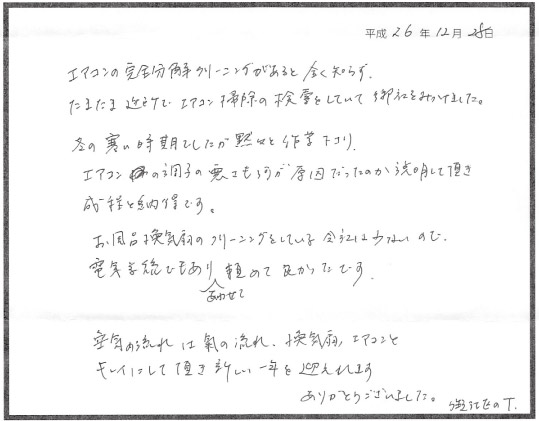 平成 26 年 12 月 28日
エアコンの完全分解クリーニングがあると全く知らず、
たまたま近所でエアコン掃除の検索をしていて御社をみつけました。
冬の寒い時期でしたが黙々と作業下さり、
エアコンの調子の悪さもカビが原因だったのか説明して頂き
成程と納得です。
お風呂換気扇のクリーニングをしている会社は少ないので、
電気系統でもあり あわせて 頼めて良かったです。
空気の流れは気の流れ、換気扇、エアコンと
キレイにして頂き新しい一年を迎えれます
ありがとうございました。
区のT.